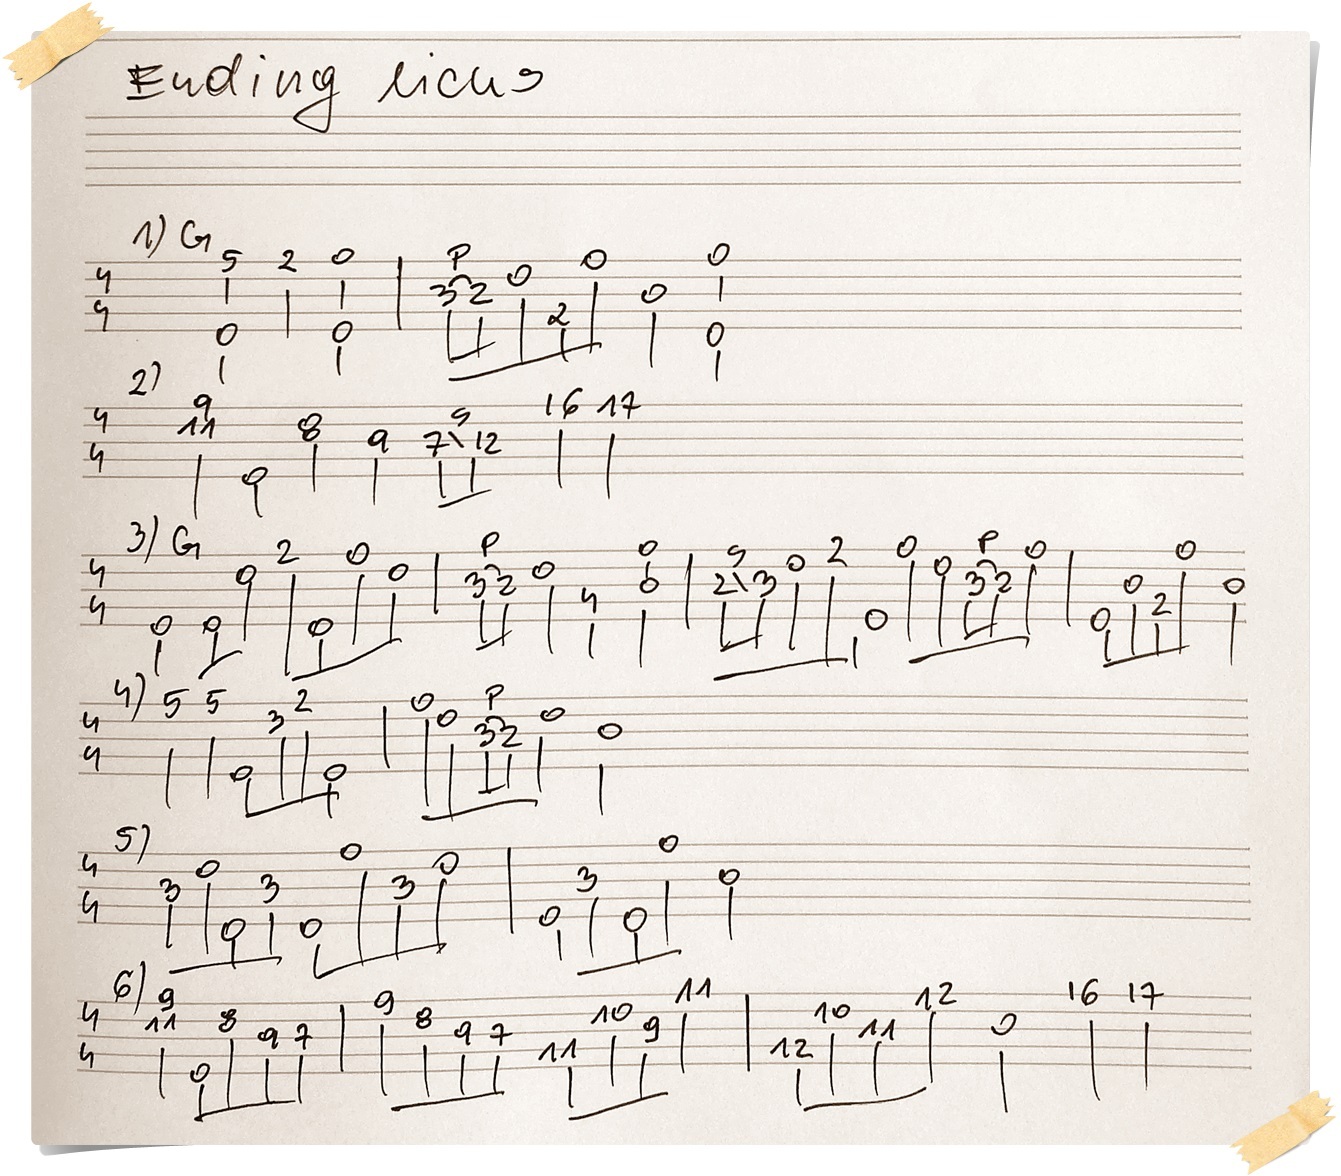 Ending licks
1) G
5 2 0 P 0 0 0
4 3 2 0
4 0 0 2 0
2)
9 S 16 17
4 11 8 9 7\12
4 0
3) G
2 0 P 0 S 2 0 P 0 0
4 0 0 3 2 0 0 2\3 0 0 3 2 0 0
4 0 0 0 4 0 0 2
4) 5 5 2 0 P
4 3 0 3 2 0 0
4 0 0
5) 0 0
4 3 0 3 3 0 3 0
4 0 0 0 0
6) 9 9 11 12 16 17
4 11 8 8 10 10 0
4 0 9 7 9 7 11 9 12 11